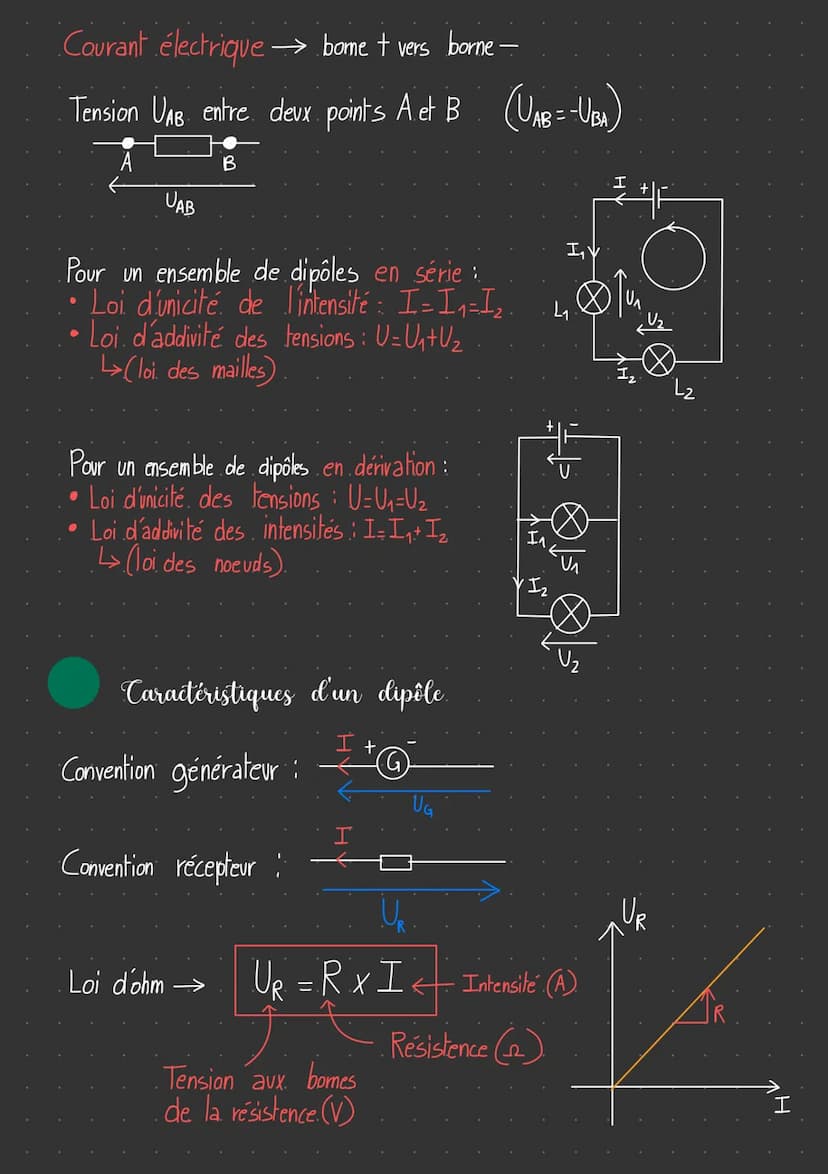 Courant électrique → borne + vers borne –
Tension UAB entre deux points A et B (UAB = -UBA)
A B
UAB
I + -
Pour un ensemble de dipôles en série :
I1
• Loi d'unicité de l'intensité : I=I1=I2
L1 U1
U2
• Loi d'addivité des tensions : U=U1+U2
↳(loi des mailles)
I2
L2
+ -
U
Pour un ensemble de dipôles en dérivation :
• Loi d'unicité des tensions : U=U1=U2
• Loi d'addivité des intensités : I=I1+I2
I1
U1
↳(loi des noeuds)
I2
U2
Caractéristiques d'un dipôle
Convention générateur : I + G -
UG
Convention récepteur : I
UR
UR
Loi d'ohm → UR = R x I ← Intensité (A)
R
Résistence (Ω)
Tension aux bornes
de la résistence (V)
I